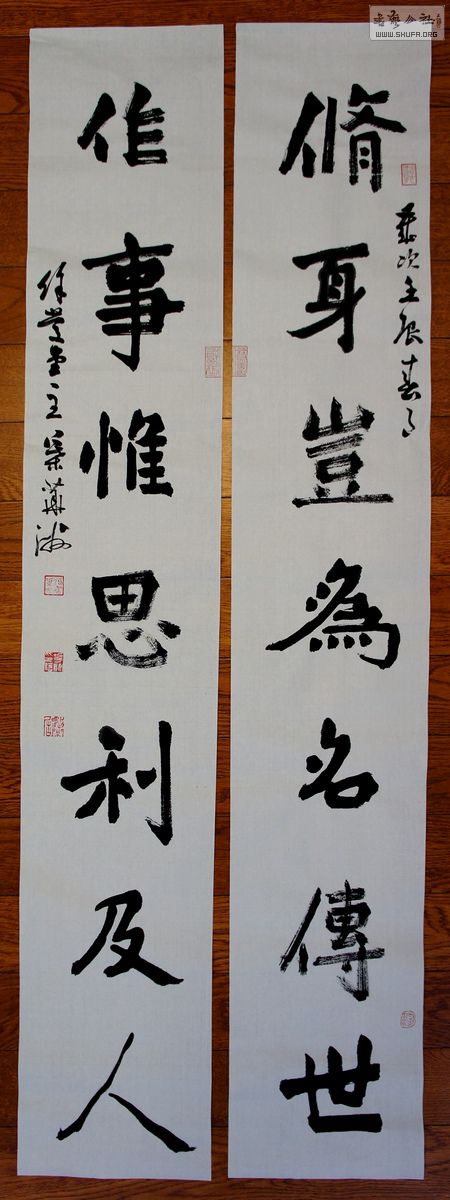 書藝公社
WWW.SHUFA.ORG
脩身豈為名傳世
歲次壬辰春月
作事惟思利及人